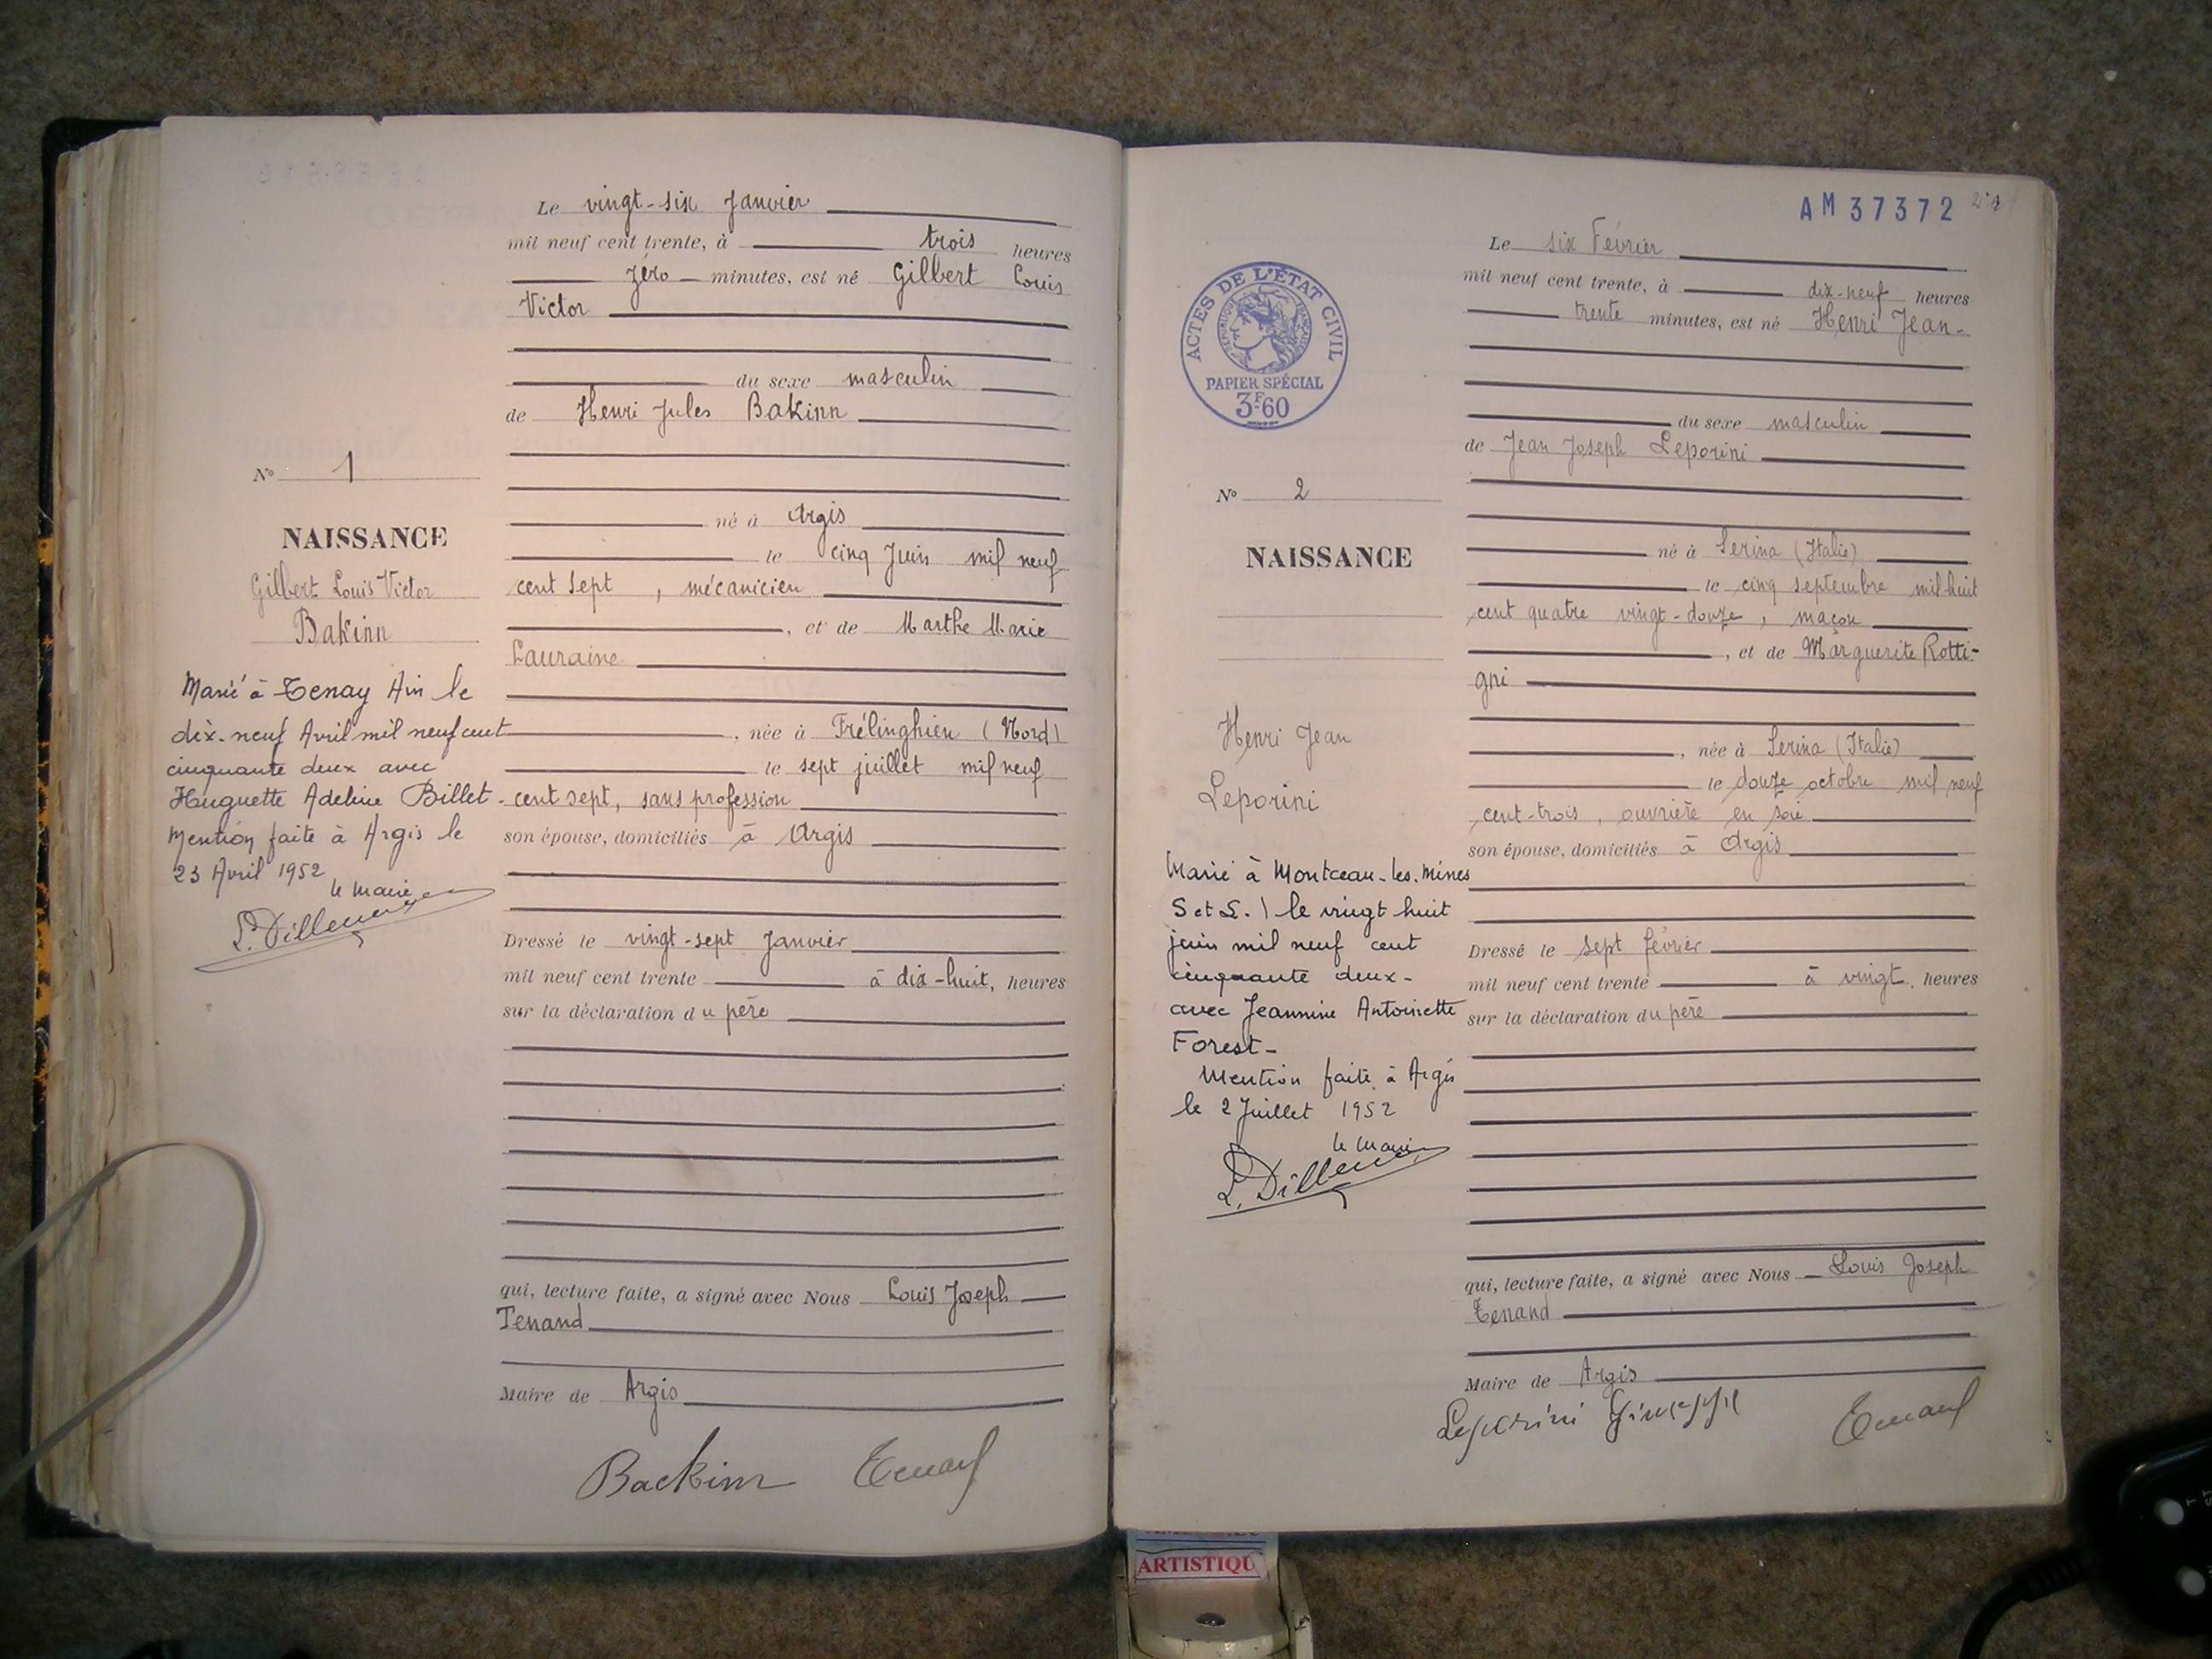 Le vingt-six Janvier
mil neuf cent trente, à trois heures
zéro minutes, est né Gilbert Louis
Victor
du sexe masculin
de Henri Jules Bakinn
né à Argis
le cinq Juin mil neuf
cent sept, mécanicien
, et de Marthe Marie
Lauraine
, née à Frélinghien (Nord)
le sept juillet mil neuf
cent sept, sans profession
son épouse, domiciliés à Argis
Dressé le vingt-sept Janvier
mil neuf cent trente à dix-huit, heures
sur la déclaration du père
qui, lecture faite, a signé avec Nous Louis Joseph
Tenand
Maire de Argis
Backinn Tenand
N° 1
NAISSANCE
Gilbert Louis Victor
Bakinn
Marié à Tenay Ain le
dix-neuf Avril mil neuf cent
cinquante deux avec
Huguette Adeline Billet-
Mention faite à Argis le
23 Avril 1952
le Maire
AM37372
Le six Février
mil neuf cent trente, à dix-neuf heures
trente minutes, est né Henri Jean-
du sexe masculin
de Jean Joseph Leporini
né à Serina (Italie)
le cinq septembre mil huit
cent quatre vingt-douze, maçon
, et de Marguerite Rotti-
gni
, née à Serina (Italie)
le douze octobre mil neuf
cent-trois, ouvrière en soie
son épouse, domiciliés à Argis
Dressé le sept février
mil neuf cent trente à vingt, heures
sur la déclaration du père
qui, lecture faite, a signé avec Nous Louis Joseph
Tenand
Maire de Argis
Leporini Giuseppe Tenand
ACTES DE L'ÉTAT CIVIL
RÉPUBLIQUE FRANÇAISE
PAPIER SPÉCIAL
3F60
N° 2
NAISSANCE
Henri Jean
Leporini
Marié à Montceau-les-Mines
S et L.) le vingt huit
juin mil neuf cent
cinquante deux-
avec Jeannine Antoinette
Forest-
Mention faite à Argis
le 2 Juillet 1952
le Maire
ARTISTIQU